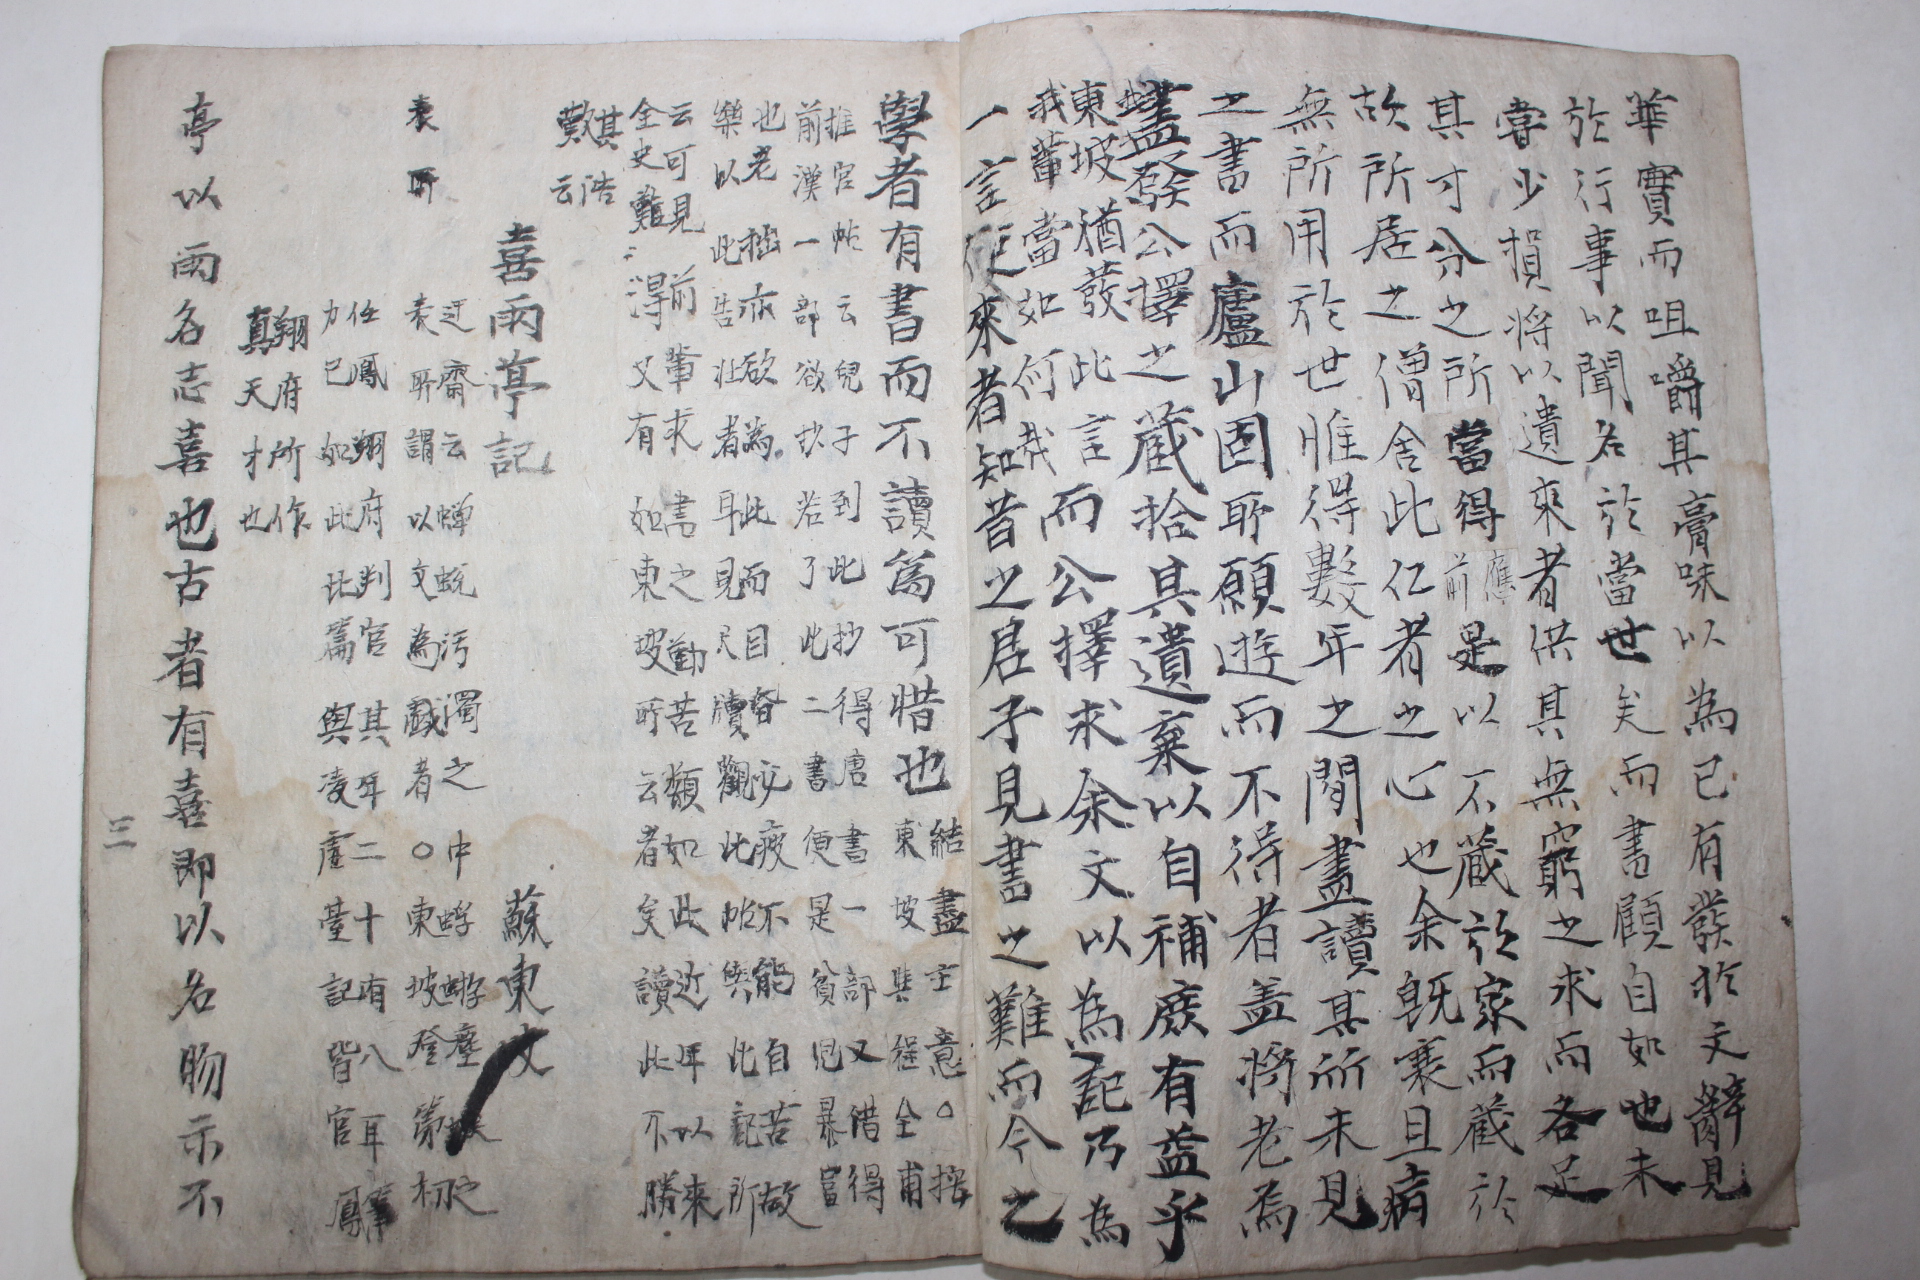 華實而咀嚼其膏味以為己有發於文辭見
於行事以聞名於當世矣而書顧自如也未
嘗少損將以遺來者供其無窮之求而各足
其才分之所當得應前是以不藏於家而藏於
故所居之僧舍此仁者之心也余旣衰且病
無所用於世惟得數年之間盡讀其所未見
之書而廬山固所願遊而不得者盖將老焉
盡發公擇之藏拾其遺棄以自補庶有益乎
東坡猶發此言
我輩當如何哉
而公擇求余文以為記乃為
一言使來者知昔之居子見書之難而今之
學者有書而不讀爲可惜也
結盡主意○
東坡與程全甫
推官帖云兒子到此抄得唐書一部又借得
前漢一部欲抄若了此二書便是貧兒暴富
也老拙亦欲為此而目昏心疲不能自苦故
樂以此告壯者耳見尺牘觀此帖與此記所
云可見前輩求書之勤苦類如此近年以來
全史難得又有如東坡所云者矣讀此不勝
其浩
歎云
喜雨亭記
蘇東坡
表所
迂齋云蟬蛻汚濁之中蜉蝣塵埃之
表所謂以文為戲者○東坡登第初
任鳳翔府判官其年二十有八耳
力已如此此篇與凌虛臺記皆官鳳
翔府所作
真天才也
亭以雨名志喜也古者有喜即以名物示不
三